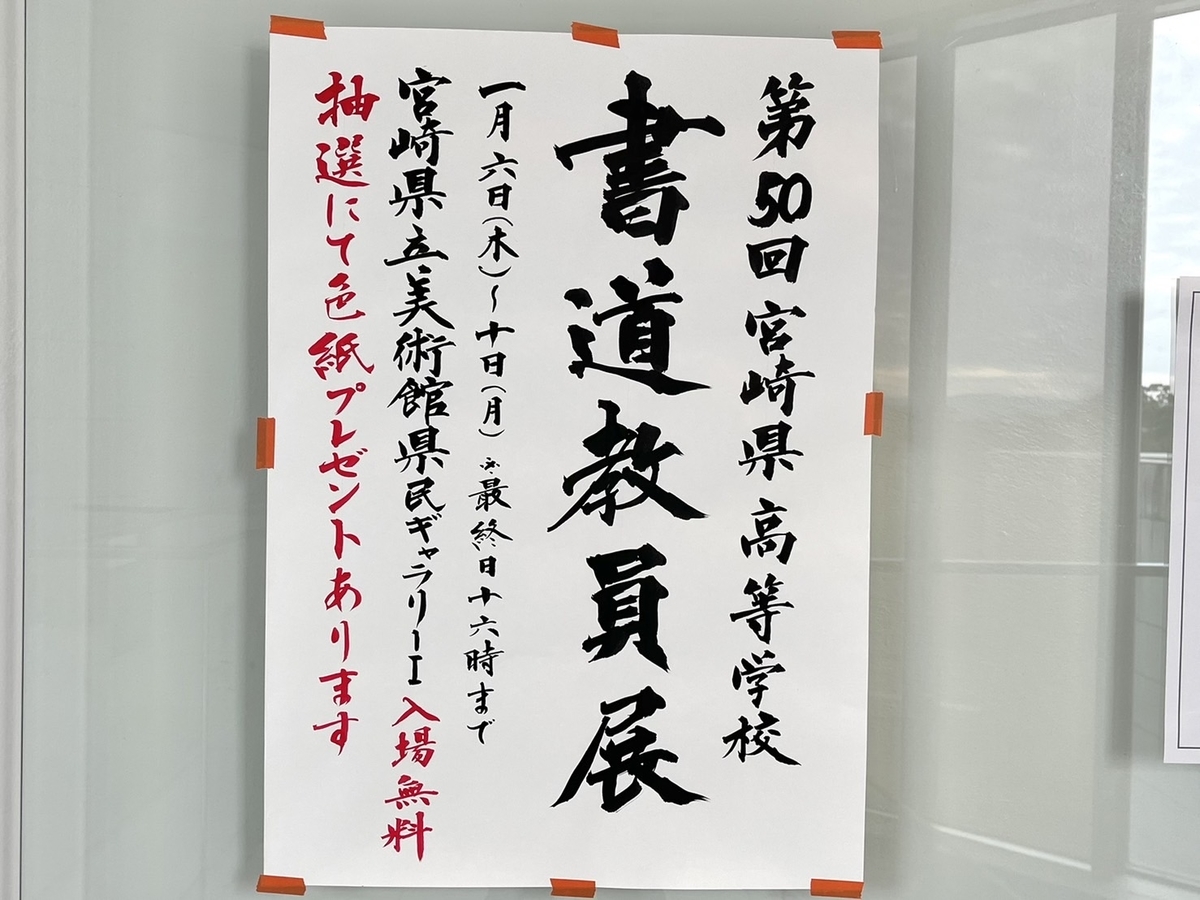 第50回宮崎県高等学校
書道教員展
一月六日(木)〜十日(月) ※最終日十六時まで
宮崎県立美術館県民ギャラリーI 入場無料
抽選にて色紙プレゼントあります